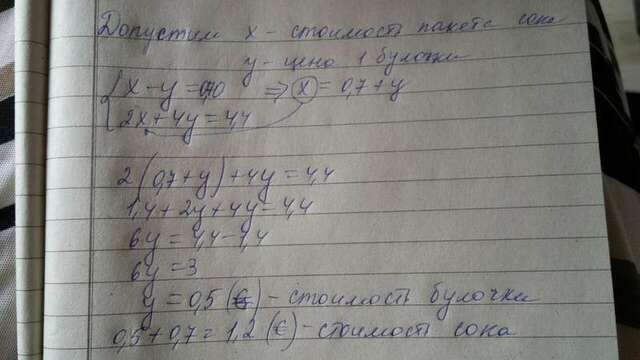 Допустим x - стоимость пакета сока
y - цена 1 булочки
{ x - y = 0,70 ⇒ x = 0,7 + y
2x + 4y = 4,4
2(0,7 + y) + 4y = 4,4
1,4 + 2y + 4y = 4,4
6y = 4,4 - 1,4
6y = 3
y = 0,5 (€) - стоимость булочки
0,5 + 0,7 = 1,2 (€) - стоимость сока